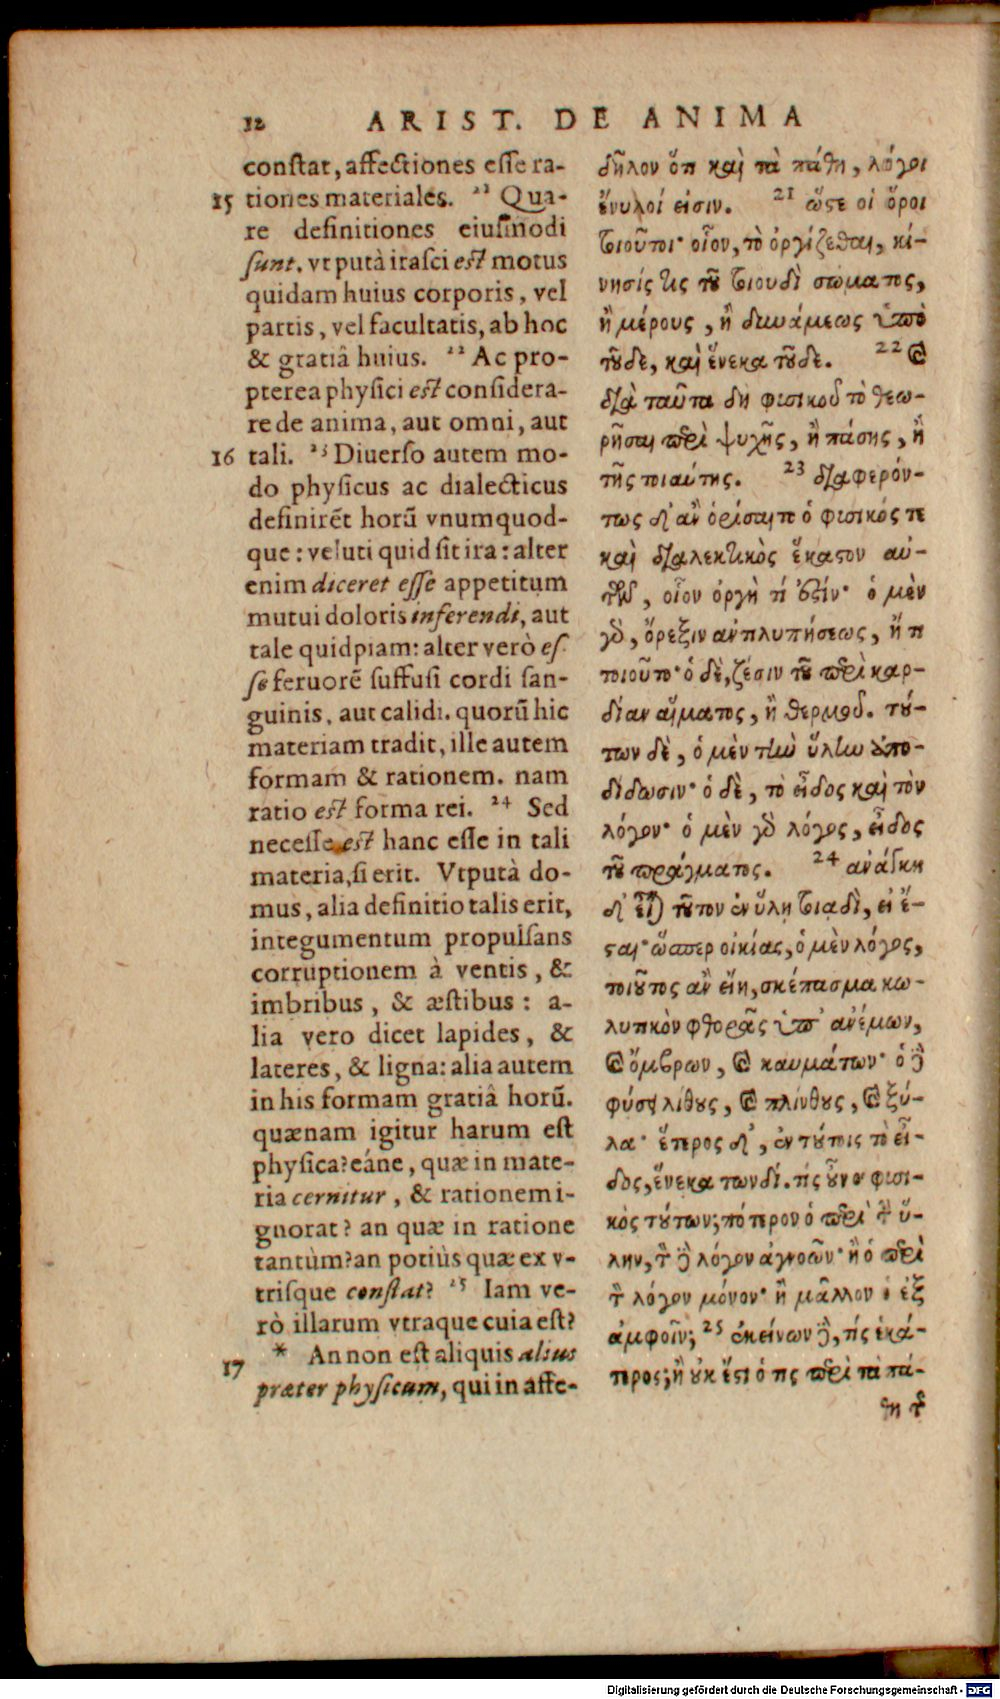 12 ARIST. DE ANIMA
constat, affectiones esse ra-
15 tiones materiales. 21 Qua-
re definitiones eiusmodi
sunt. vt putà irasci est motus
quidam huius corporis, vel
partis, vel facultatis, ab hoc
& gratiâ huius. 22 Ac pro-
pterea physici est considera-
re de anima, aut omni, aut
16 tali. 23 Diuerso autem mo-
do physicus ac dialecticus
definirēt horū vnumquod-
que: veluti quid sit ira: alter
enim diceret esse appetitum
mutui doloris inferendi, aut
tale quidpiam: alter verò es-
se feruorē suffusi cordi san-
guinis, aut calidi. quorū hic
materiam tradit, ille autem
formam & rationem. nam
ratio est forma rei. 24 Sed
necesse est hanc esse in tali
materia, si erit. Vtputà do-
mus, alia definitio talis erit,
integumentum propulsans
corruptionem à ventis, &
imbribus, & æstibus: a-
lia vero dicet lapides, &
lateres, & ligna: alia autem
in his formam gratiâ horū.
quænam igitur harum est
physica? eáne, quæ in mate-
ria cernitur, & rationem i-
gnorat? an quæ in ratione
tantùm? an potiùs quæ ex v-
trisque constat? 25 Iam ve-
rò illarum vtraque cuia est?
17 * An non est aliquis alius
præter physicum, qui in affe-
δῆλον ὅτι καὶ τὰ πάθη, λόγοι
ἔνυλοί εἰσιν. 21 ὥστε οἱ ὅροι
τοιοῦτοι· οἷον, τὸ ὀργίζεσθαι, κί-
νησίς τις τοῦ τοιουδὶ σώματος,
ἢ μέρους, ἢ δυνάμεως ὑπὸ
τοῦδε, καὶ ἕνεκα τοῦδε. 22 καὶ
διὰ ταῦτα δὴ φυσικοῦ τὸ θεω-
ρῆσαι περὶ ψυχῆς, ἢ πάσης, ἢ
τῆς τοιαύτης. 23 διαφερόν-
τως δ' ἂν ὁρίσαιτο ὁ φυσικός τε
καὶ διαλεκτικὸς ἕκαστον αὐ-
τῶν, οἷον ὀργὴ τί ἐστίν· ὁ μὲν
γὰρ, ὄρεξιν ἀντιλυπήσεως, ἤ τι
τοιοῦτο· ὁ δὲ, ζέσιν τοῦ περὶ καρ-
δίαν αἵματος, ἢ θερμοῦ. τού-
των δὲ, ὁ μὲν τὴν ὕλην ἀπο-
δίδωσιν· ὁ δὲ, τὸ εἶδος καὶ τὸν
λόγον· ὁ μὲν γὰρ λόγος, εἶδος
τοῦ πράγματος. 24 ἀνάγκη
δ' εἶναι τοῦτον ἐν ὕλῃ τοιᾳδὶ, εἰ ἔ-
σται· ὥσπερ οἰκίας, ὁ μὲν λόγος,
τοιοῦτος ἂν εἴη, σκέπασμα κω-
λυτικὸν φθορᾶς ὑπ' ἀνέμων,
καὶ ὄμβρων, καὶ καυμάτων· ὁ δὲ
φύσει λίθους, καὶ πλίνθους, καὶ ξύ-
λα· ἕτερος δ', ἐν τούτοις τὸ εἶ-
δος, ἕνεκα τωνδί. τίς οὖν ὁ φυσι-
κὸς τούτων; πότερον ὁ περὶ τὴν ὕ-
λην, τὸν δὲ λόγον ἀγνοῶν· ἢ ὁ περὶ
τὸν λόγον μόνον· ἢ μᾶλλον ὁ ἐξ
ἀμφοῖν; 25 ἐκείνων δὲ, τίς ἑκά-
τερος; ἢ οὐκ ἔστι ὁ τις περὶ τὰ πά-
θη τῆς
Digitalisierung gefördert durch die Deutsche Forschungsgemeinschaft - DFG